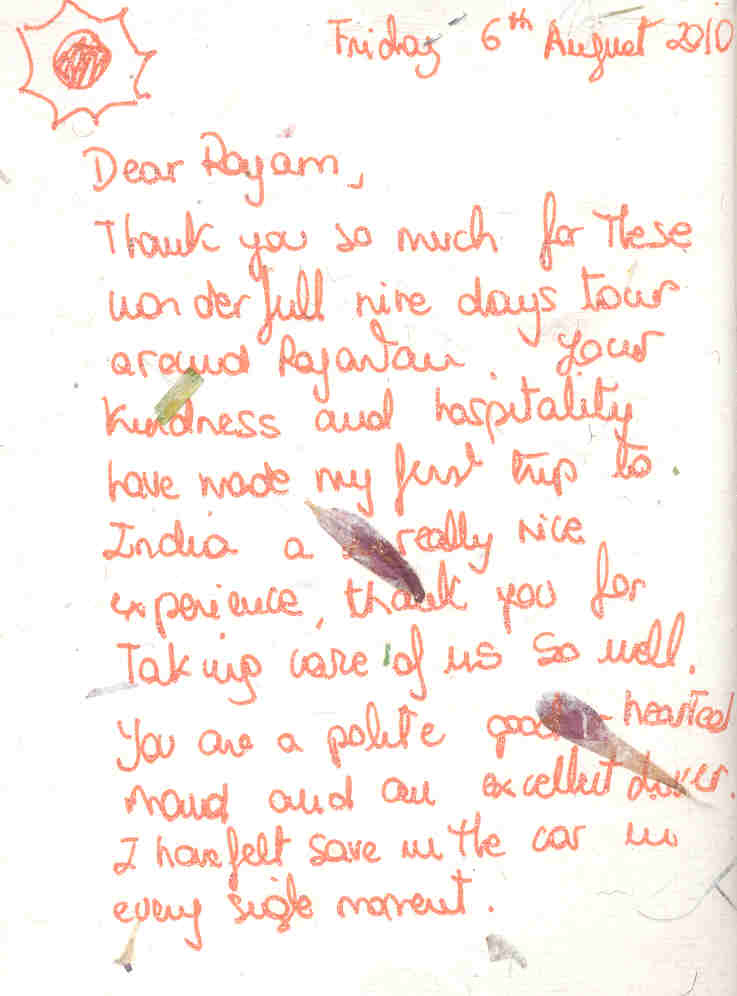 Friday 6th August 2010
Dear Rayam,
Thank you so much for these
wonderfull nine days tour
around Rajastan. Your
kindness and hospitality
have made my first trip to
India a really nice
experience, thank you for
taking care of us so well.
You are a polite good-hearted
mand and an excellent driver.
I have felt save in the car in
every single moment.